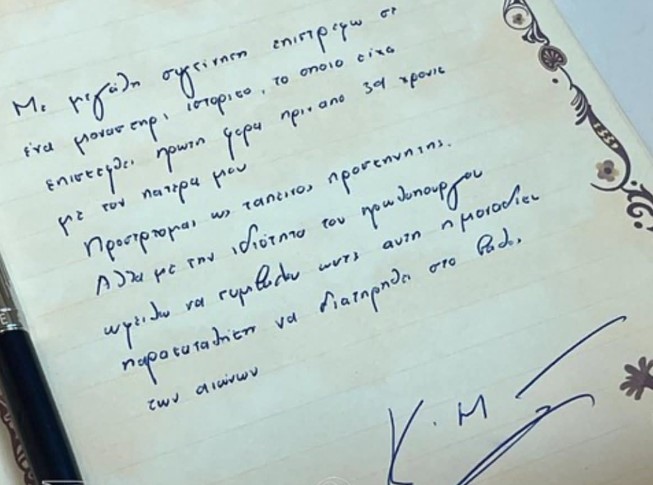 Με μεγάλη συγκίνηση επιστρέφω σε
ένα μοναστήρι ιστορικό, το οποίο είχα
επισκεφθεί πρώτη φορά πριν από 39 χρόνια
με τον πατέρα μου
Προσέρχομαι ως ταπεινός προσκυνητής.
Αλλά με την ιδιότητα του πρωθυπουργού
οφείλω να συμβάλω ώστε αυτή η μοναδική
παρακαταθήκη να διατηρηθεί στο βάθος
των αιώνων
Κ. Μ